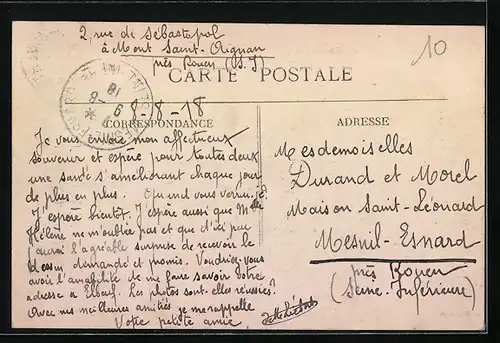 2, rue de Sébastopol
à Mont Saint-Aignan
près Rouen (S. I)
10
CARTE POSTALE
8-18-18
CORRESPONDANCE
ADRESSE
Je vous envoie mon affectueux
souvenir et espère pour toutes deux
une santé s'améliorant chaque jour
de plus en plus. Quand vous verrai-je.
J'espère bientôt. J'espère aussi que Melle
Hélène ne m'oublie pas et que d'ici peu
j'aurai l'agréable surprise de recevoir le
dessin demandé et promis. Voudriez-vous
avoir l'amabilité de me faire savoir votre
adresse à Elbeuf. Les photos sont-elles réussies?
Avec mes meilleures amitiés je me rappelle
Votre petite amie
Mesdemoiselles
Durand et Morel
Maison Saint-Léonard
Mesnil-Esnard
près Rouen
(Seine-Inférieure)